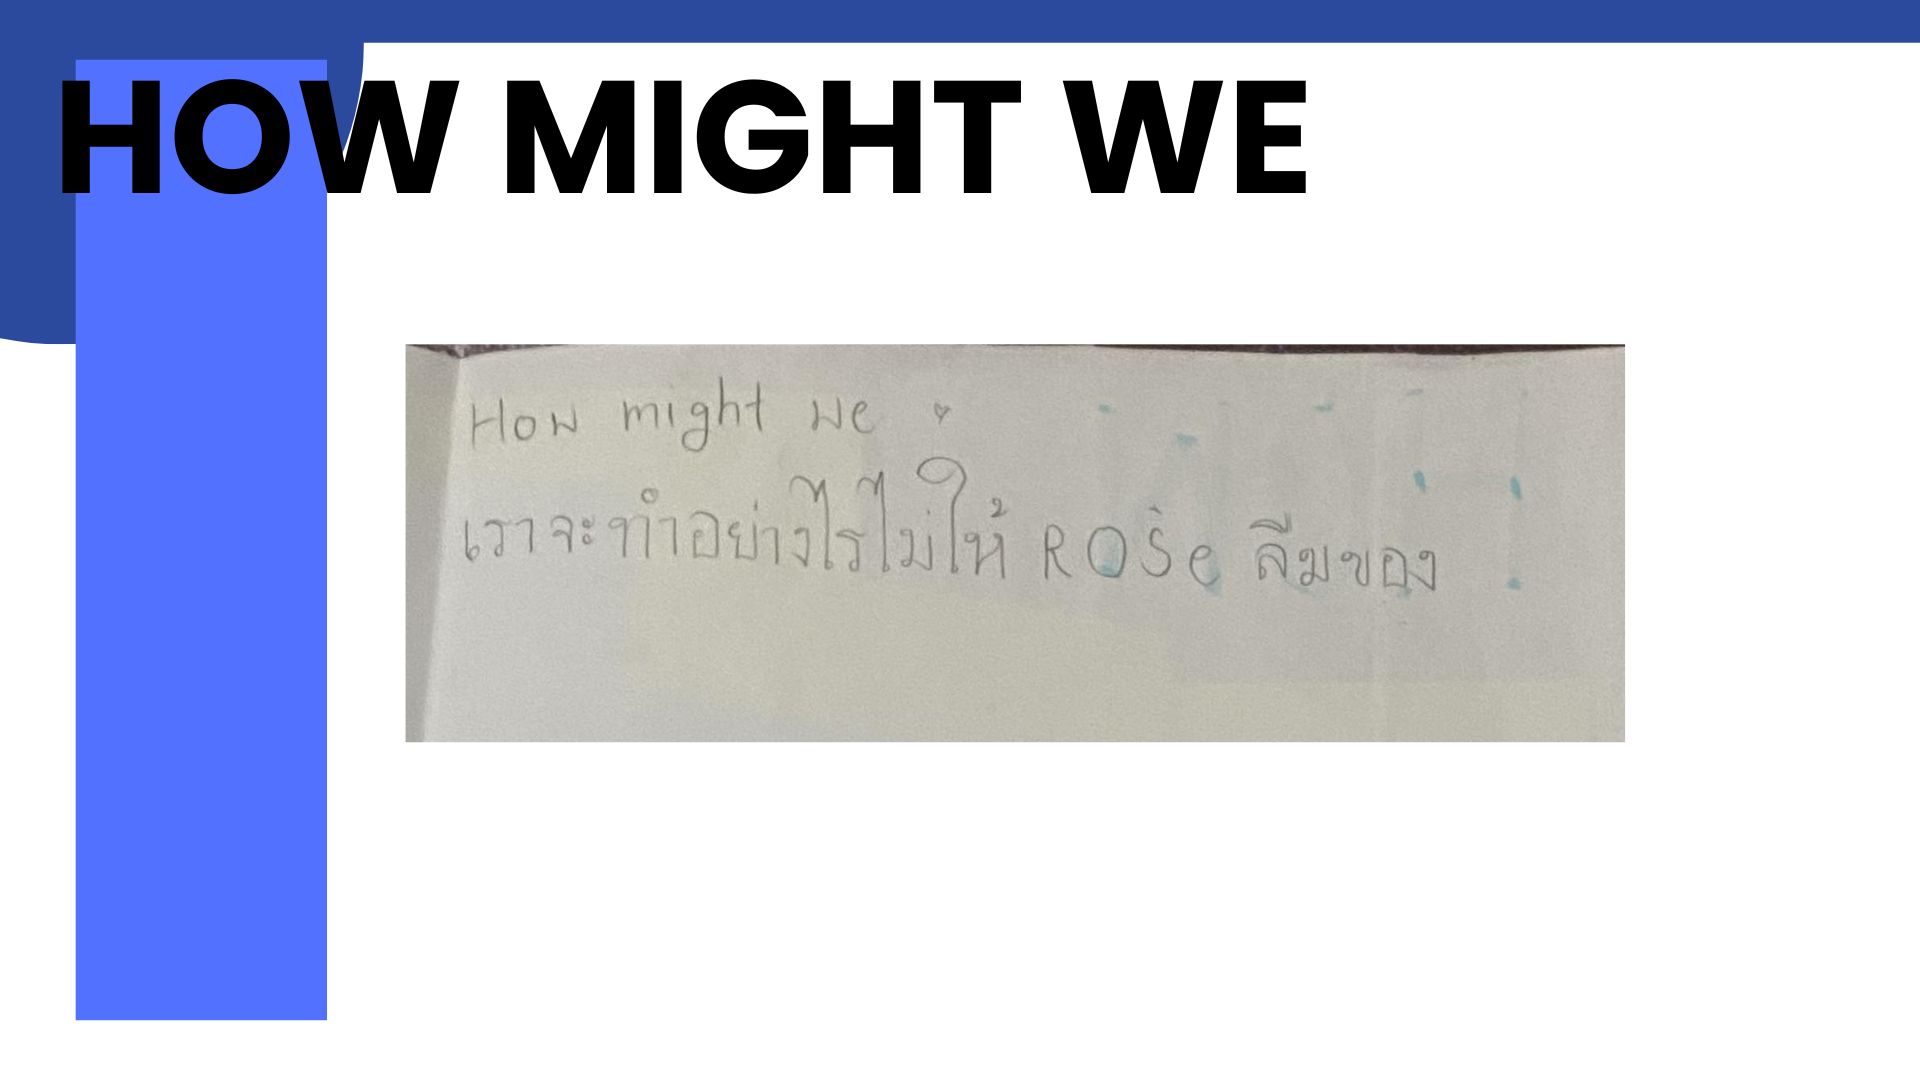 HOW MIGHT WE
How might we
เราจะทำอย่างไรไม่ให้ ROSe ลืมของ